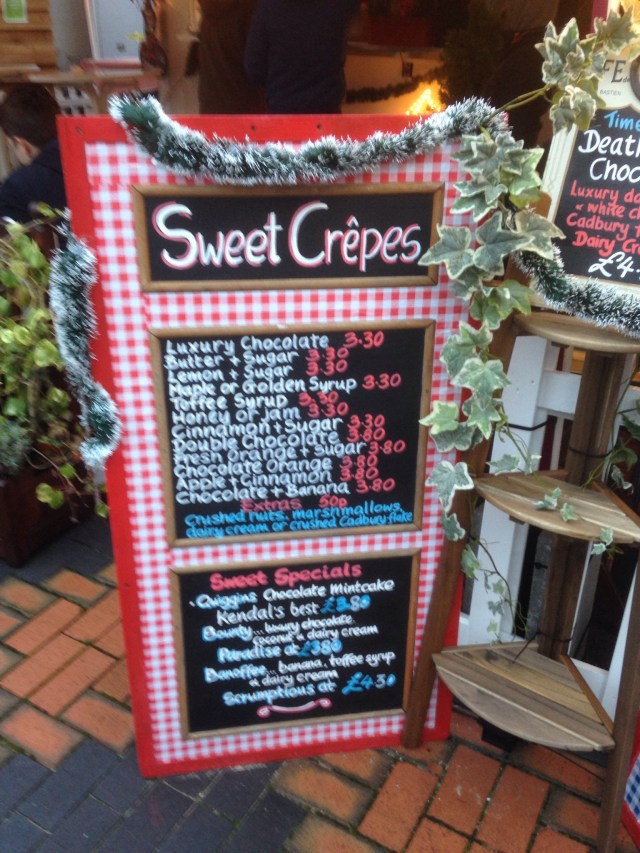 Sweet Crêpes
Luxury Chocolate 3.30
Butter + Sugar 3.30
Lemon + Sugar 3.30
Maple or Golden Syrup 3.30
Toffee Syrup 3.30
Honey or Jam 3.30
Cinnamon + Sugar 3.30
Double Chocolate 3.80
Fresh Orange + Sugar 3.80
Chocolate Orange 3.80
Apple + Cinnamon 3.80
Chocolate + Banana 3.80
Extras 50p
Crushed nuts, marshmallows,
dairy cream or crushed Cadbury flake
Sweet Specials
• Quiggins Chocolate Mintcake
Kendal's best £3.80
Bounty... luxury chocolate,
coconut & dairy cream
Paradise at £3.80
Banoffee... banana, toffee syrup
& dairy cream
Scrumptious at £4.30
Time
Death
Choc
Luxury
& white
Cadbury
Dairy
£4